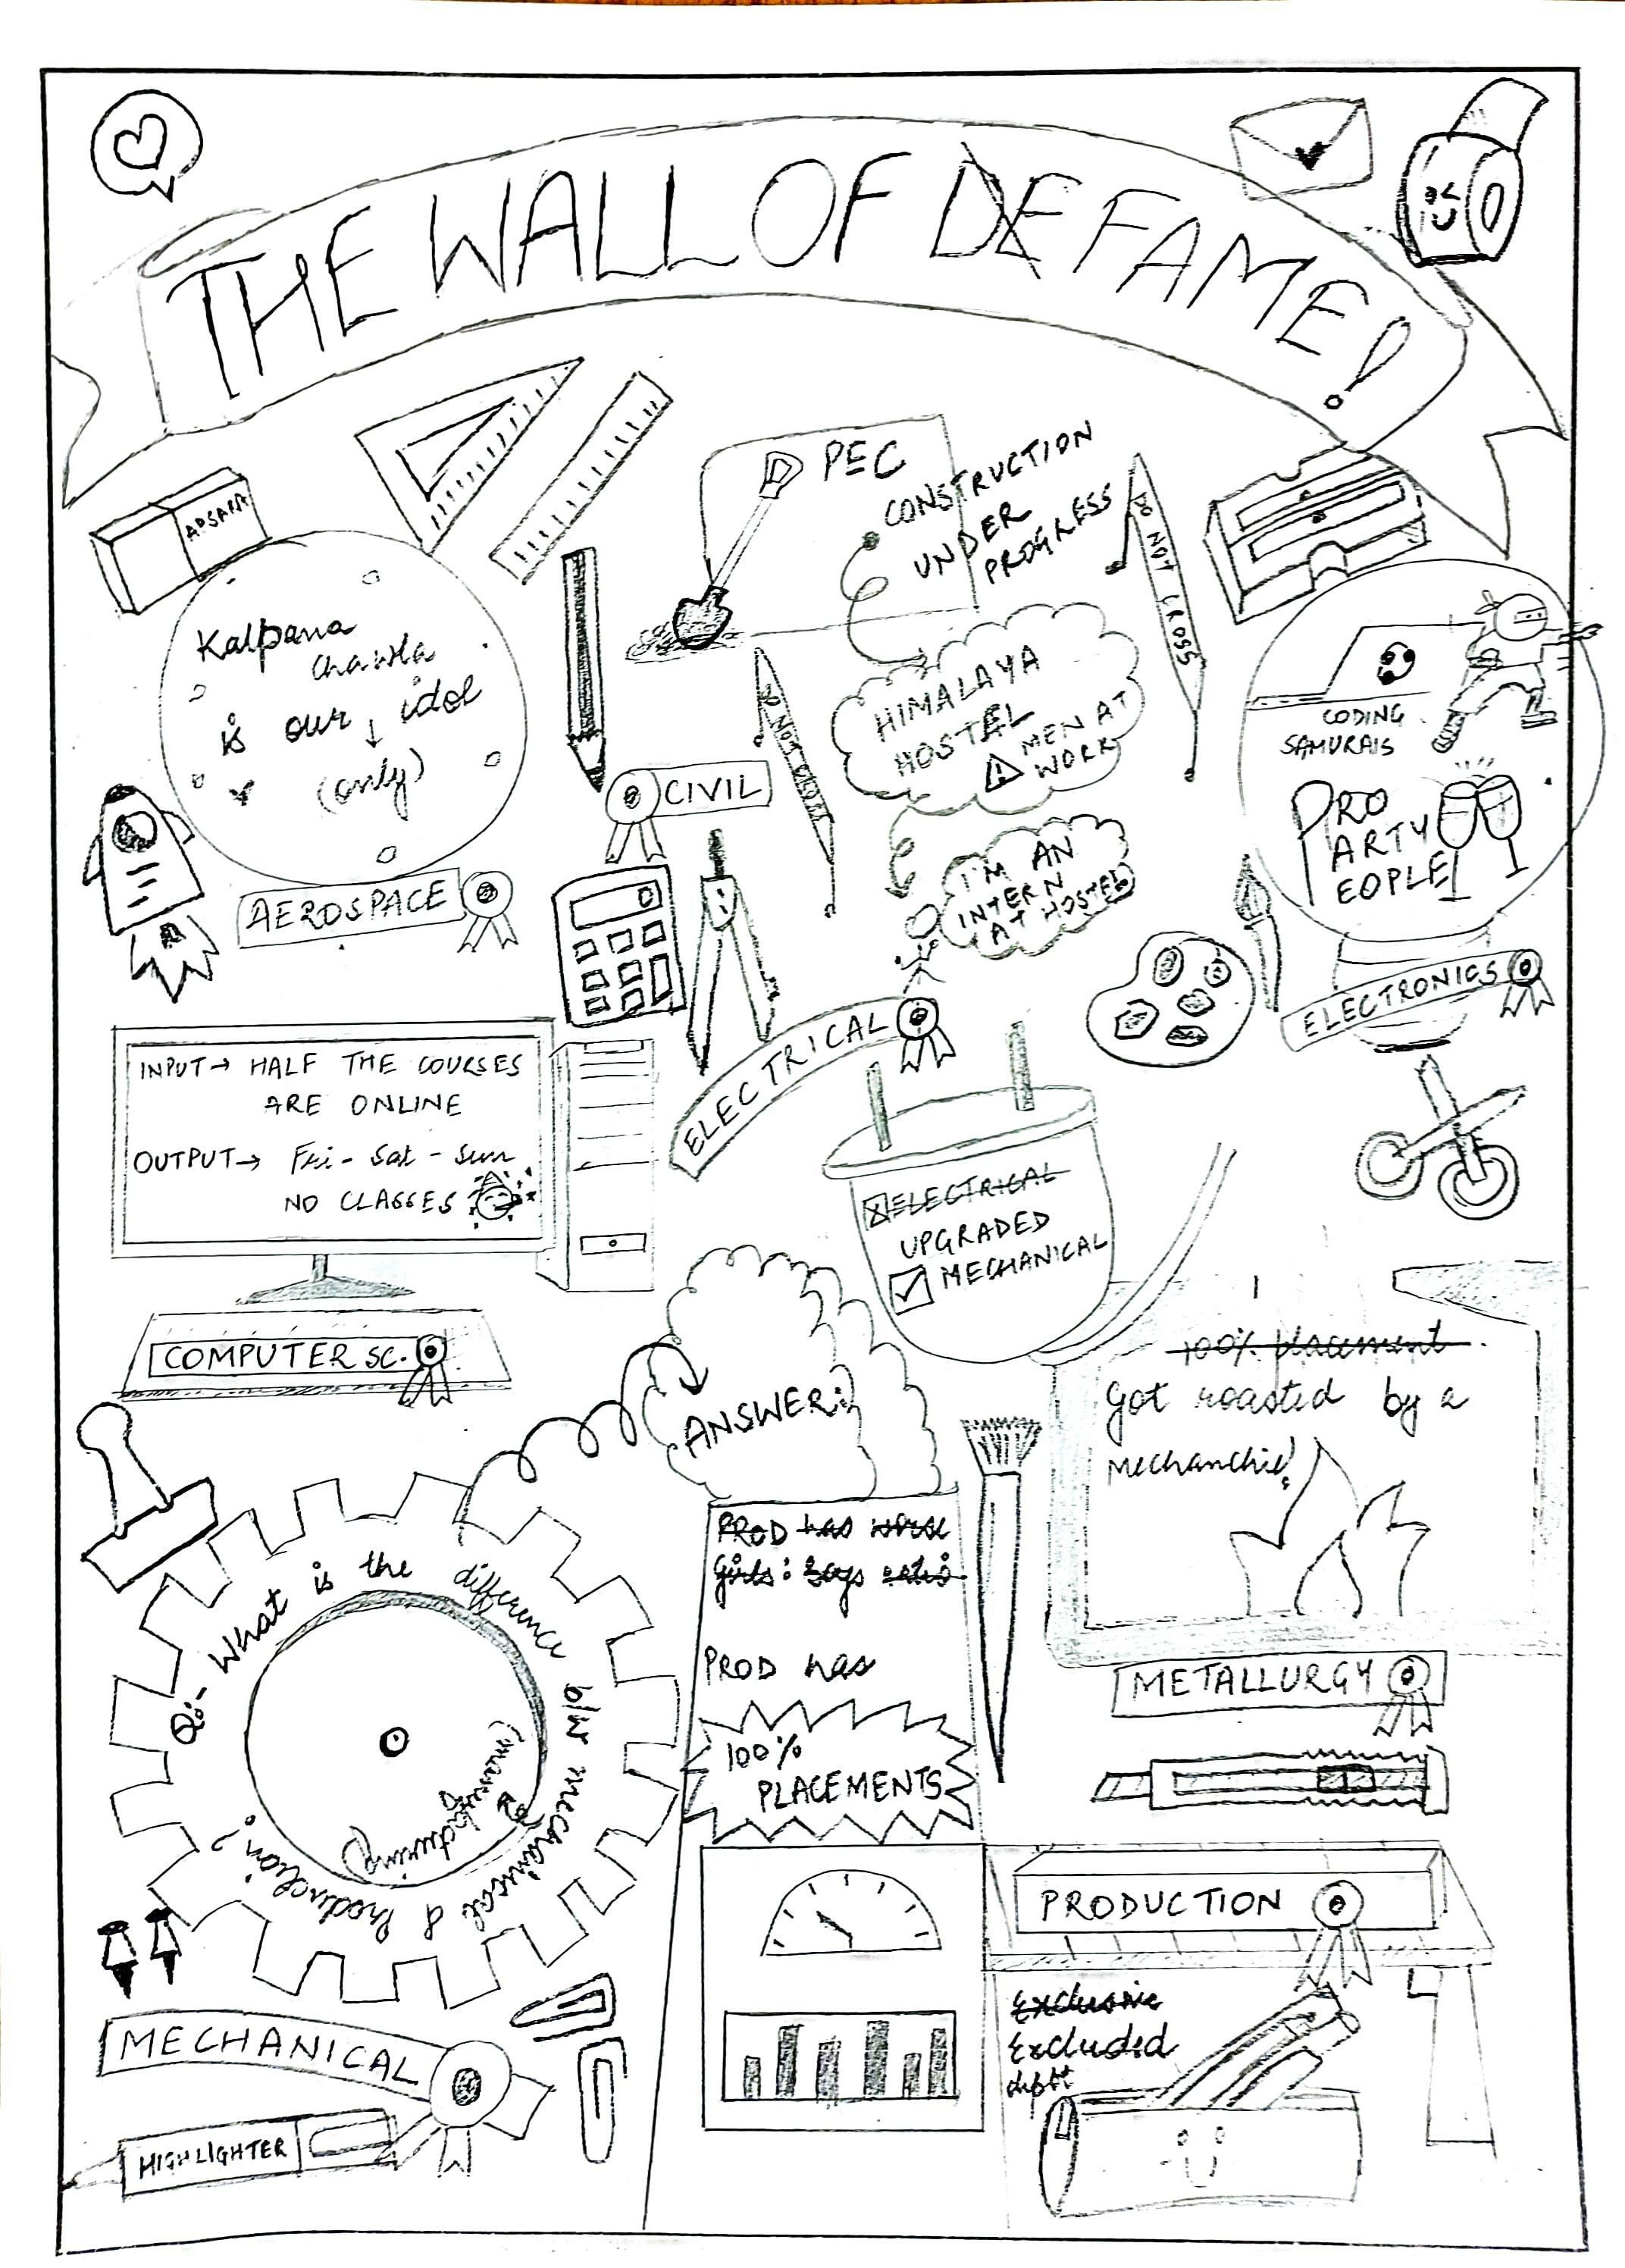 THE WALL OF DEFAME!
APSARA
Kalpana
Chawla
is our idol
(only)
AEROSPACE
PEC
CONSTRUCTION
UNDER
PROGRESS
DO NOT CROSS
HIMALAYA
HOSTEL
MEN AT
WORK
DO NOT CROSS
CIVIL
I'M AN
INTERN
AT HOSTEL
CODING
SAMURAIS
PRO
PARTY
PEOPLE
ELECTRONICS
INPUT → HALF THE COURSES
ARE ONLINE
OUTPUT → Fri - Sat - Sun
NO CLASSES
COMPUTER SC.
ELECTRICAL
ELECTRICAL
UPGRADED
MECHANICAL
100% placement
Got roasted by a
METALLURGY
Q:- What is the difference b/w mechanical & production?
(manufacturing)
MECHANICAL
HIGHLIGHTER
ANSWER:
PROD has worse
girls : boys ratio
PROD has
100%
PLACEMENTS
PRODUCTION
Exclusive
Excluded
deptt